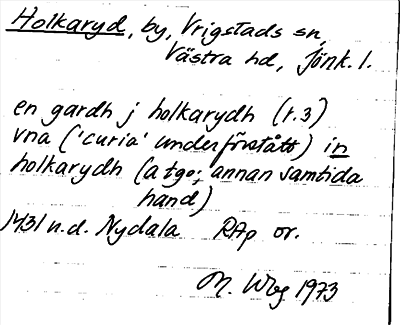 Holkaryd, by, Vrigstads sn,
Västra hd, Jönk. l.
en gardh j holkarydh (r.3)
vna ('curia' underförstått) in
holkarydh (a tgo; annan samtida
hand)
1431 u.d. Nydala RAp or.
M. Wbg 1973